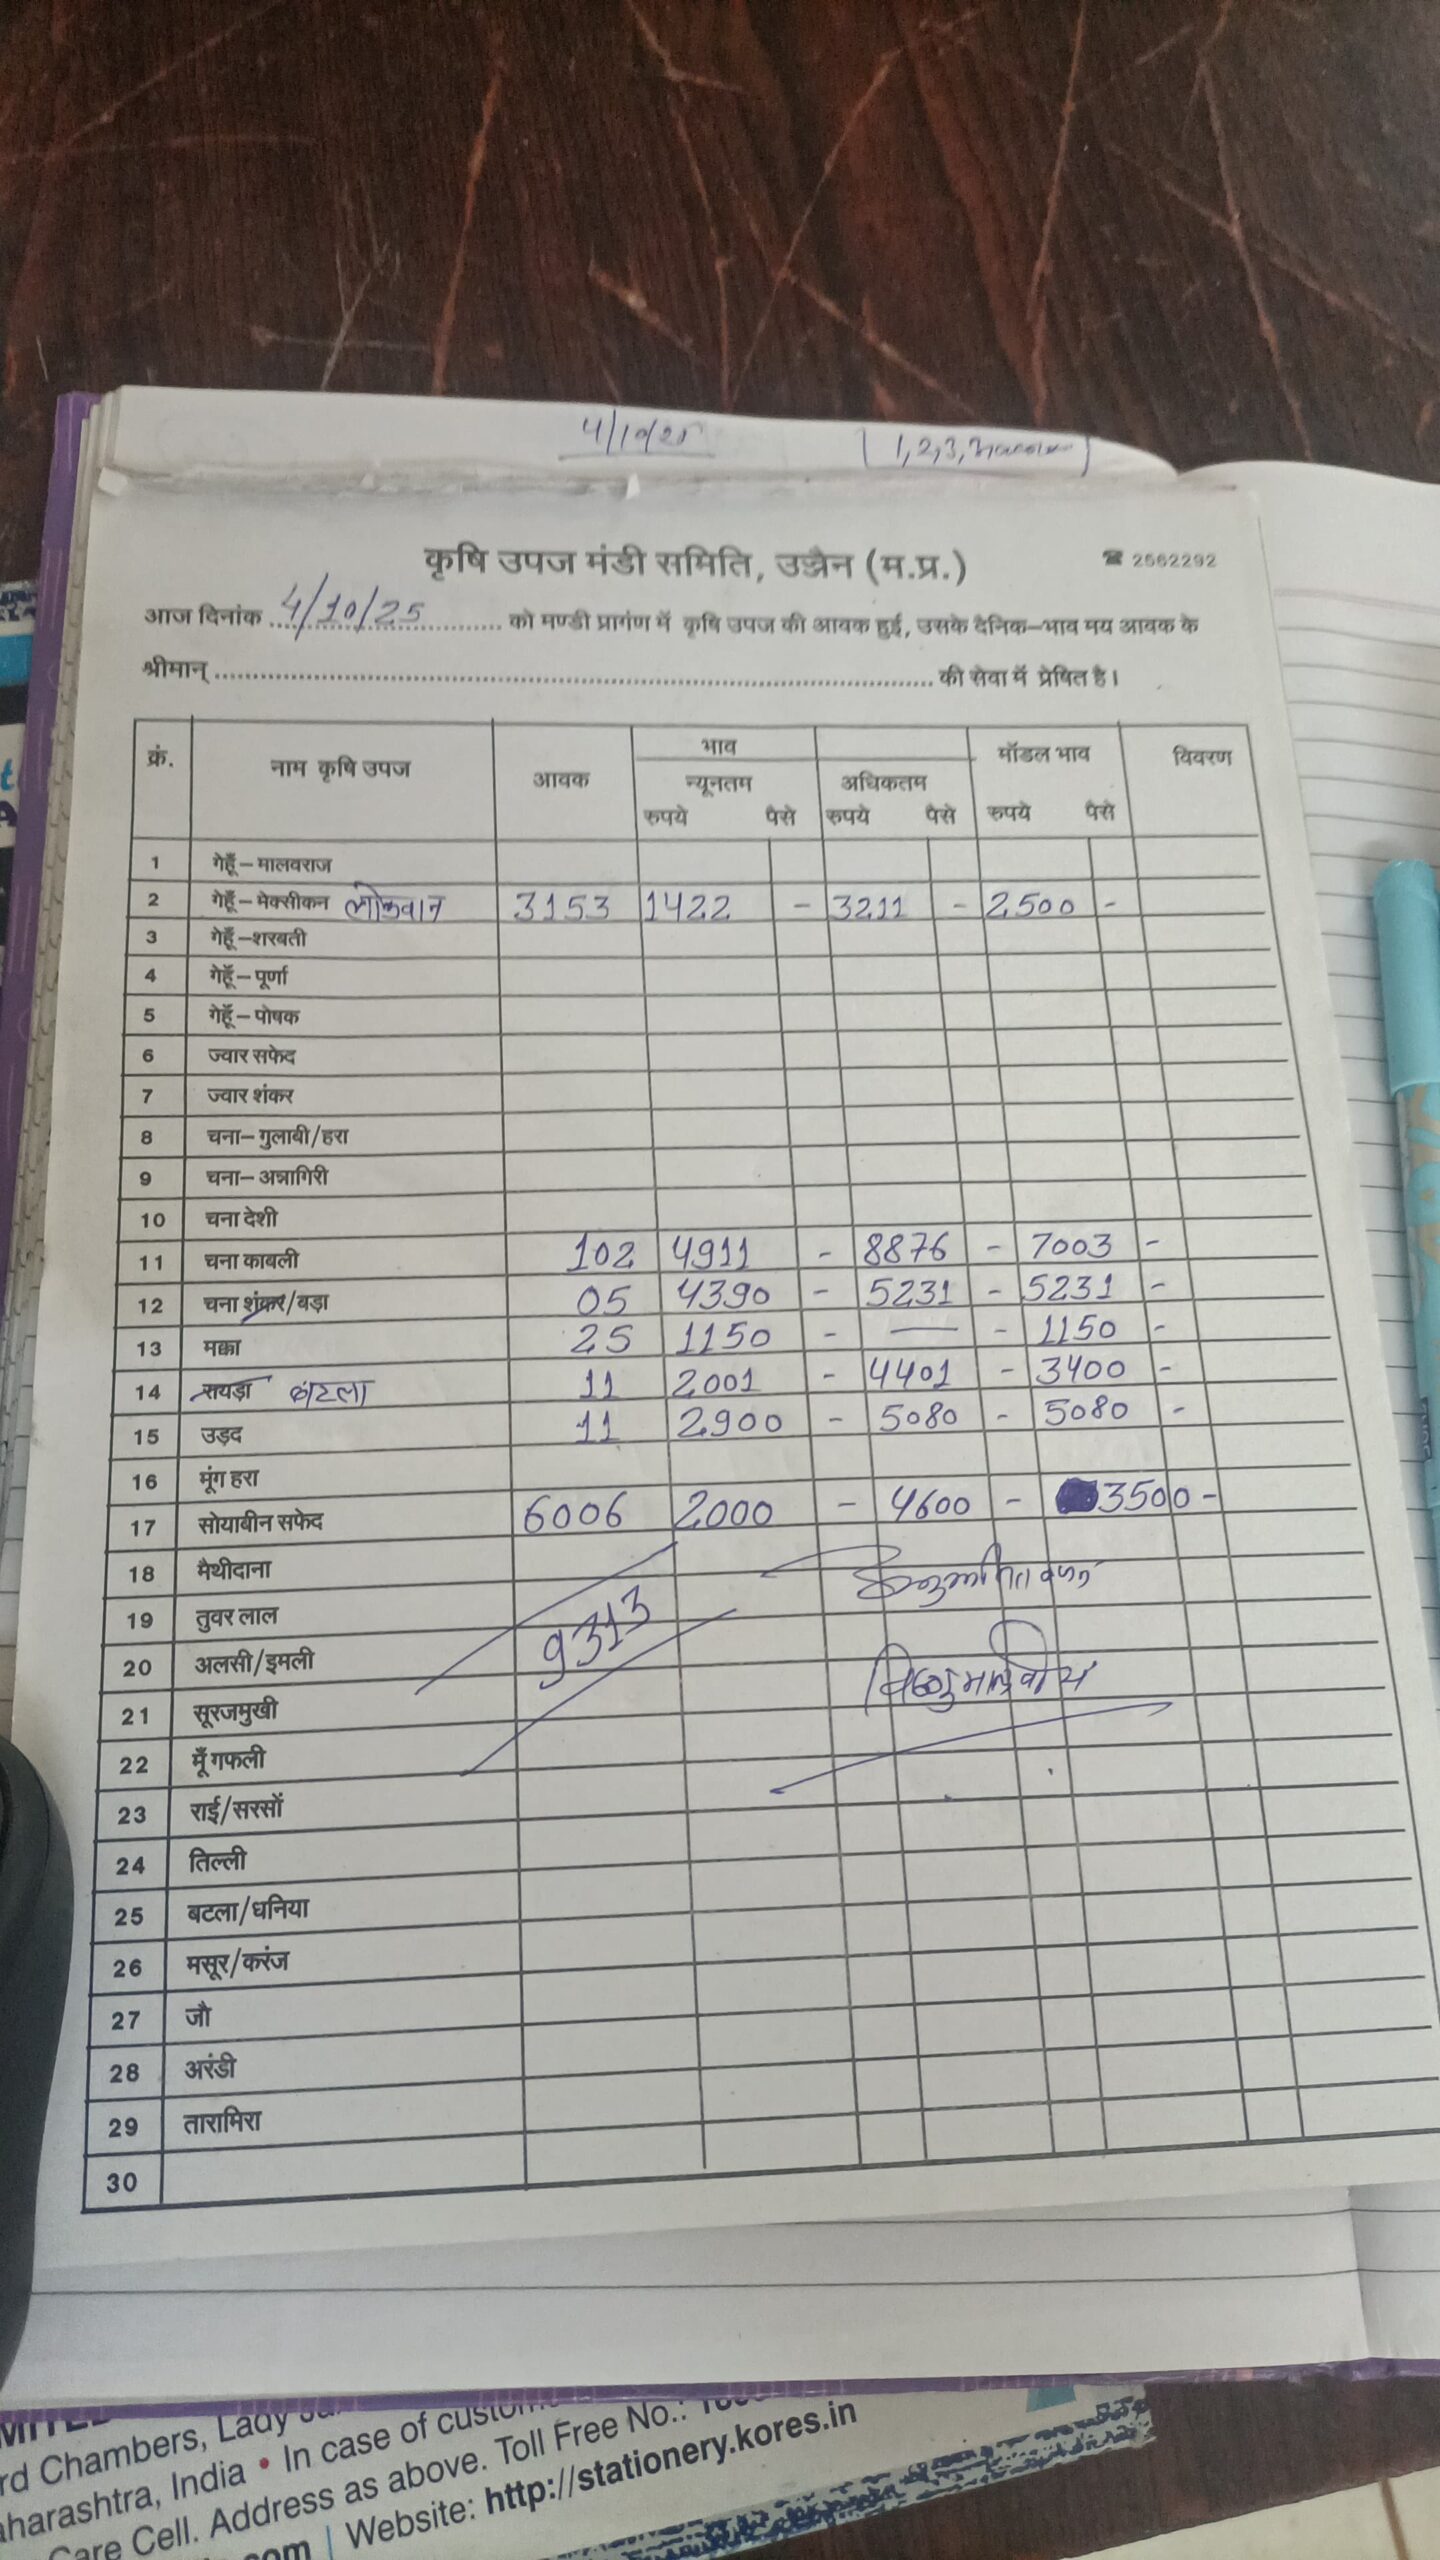 4/10/25
कृषि उपज मंडी समिति, उज्जैन (म.प्र.) ☎ 2562292
आज दिनांक 4/10/25 को मण्डी प्रागंण में कृषि उपज की आवक हुई, उसके दैनिक-भाव मय आवक के
श्रीमान् की सेवा में प्रेषित है।
क्रं. नाम कृषि उपज आवक भाव न्यूनतम रुपये पैसे अधिकतम रुपये पैसे मॉडल भाव रुपये पैसे विवरण
1 गेहूँ-मालवराज
2 गेहूँ-मेक्सीकन लोकवान 3153 1422 - 3211 - 2500 -
3 गेहूँ-शरबती
4 गेहूँ-पूर्णा
5 गेहूँ-पोषक
6 ज्वार सफेद
7 ज्वार शंकर
8 चना-गुलाबी/हरा
9 चना-अन्नागिरी
10 चना देशी
11 चना काबली 102 4911 - 8876 - 7003 -
12 चना शंकर/बड़ा 05 4390 - 5231 - 5231 -
13 मक्का 25 1150 - — - 1150 -
14 रायड़ा बटला 11 2001 - 4401 - 3400 -
15 उड़द 11 2900 - 5080 - 5080 -
16 मूंग हरा
17 सोयाबीन सफेद 6006 2000 - 4600 - 3500 -
18 मैथीदाना
19 तुवर लाल 9313
20 अलसी/इमली
21 सूरजमुखी
22 मूँगफली
23 राई/सरसों
24 तिल्ली
25 बटला/धनिया
26 मसूर/करंज
27 जौ
28 अरंडी
29 तारामिरा
30
rd Chambers, Lady
aharashtra, India • In case of custom
Care Cell. Address as above. Toll Free No.:
com | Website: http://stationery.kores.in